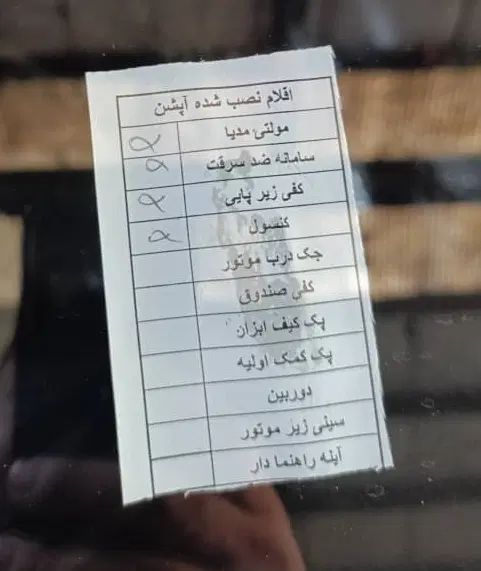 اقلام نصب شده آپشن
مولتی مدیا
سامانه ضد سرقت
کفی زیر پایی
کنسول
جک درب موتور
کفی صندوق
پک کیف ابزان
پک کمک اولیه
دوربین
سینی زیر موتور
آینه راهنما دار